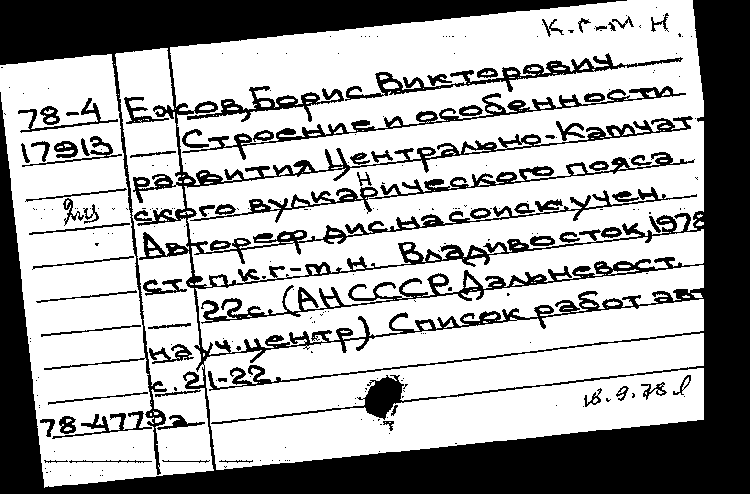 К. г-м. н.
78-4 Ежов, Борис Викторович
17913 Строение и особенности
развития Центрально-Камчат-
ского вулканического пояса.
Автореф. дис. на соиск. учен.
степ. к. г.-м. н. Владивосток, 1978
22с. (АН СССР. Дальневост.
науч. центр). Список работ авт
с. 21-22.
78-4779а
18.9.78